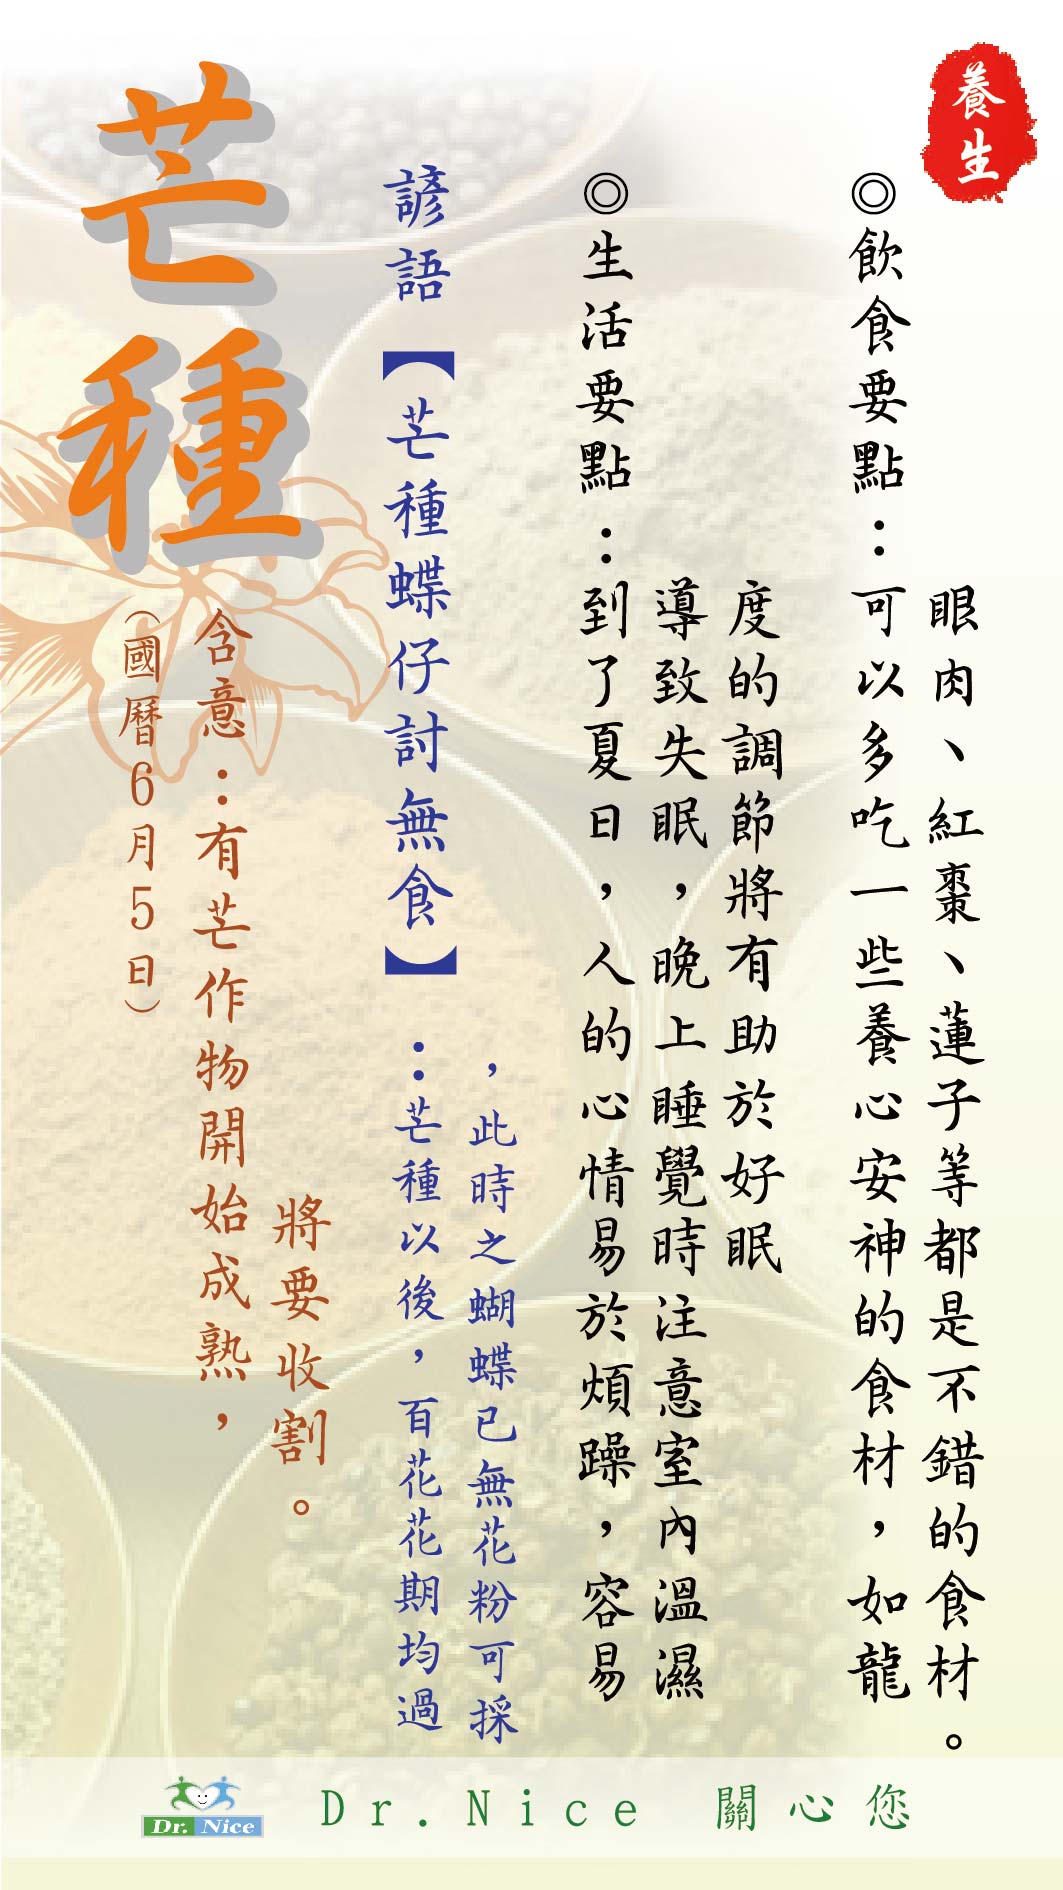 養生
芒種
（國曆6月5日）
含意：有芒作物開始成熟，
將要收割。
諺語【芒種蝶仔討無食】：芒種以後，百花花期均過
，此時之蝴蝶已無花粉可採
◎生活要點：到了夏日，人的心情易於煩躁，容易
導致失眠，晚上睡覺時注意室內溫濕
度的調節將有助於好眠
◎飲食要點：可以多吃一些養心安神的食材，如龍
眼肉、紅棗、蓮子等都是不錯的食材。
Dr. Nice
Dr.Nice 關心您